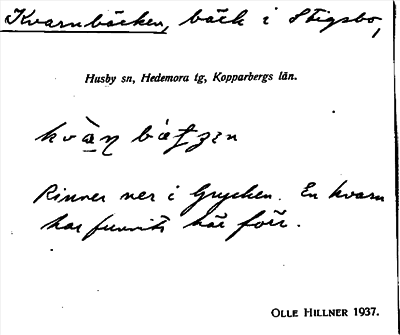 Kvarnbäcken, bäck i Stigsbo,
Husby sn, Hedemora tg, Kopparbergs län.
Rinner ner i Grycken. En kvarn
har funnits här förr.
OLLE HILLNER 1937.